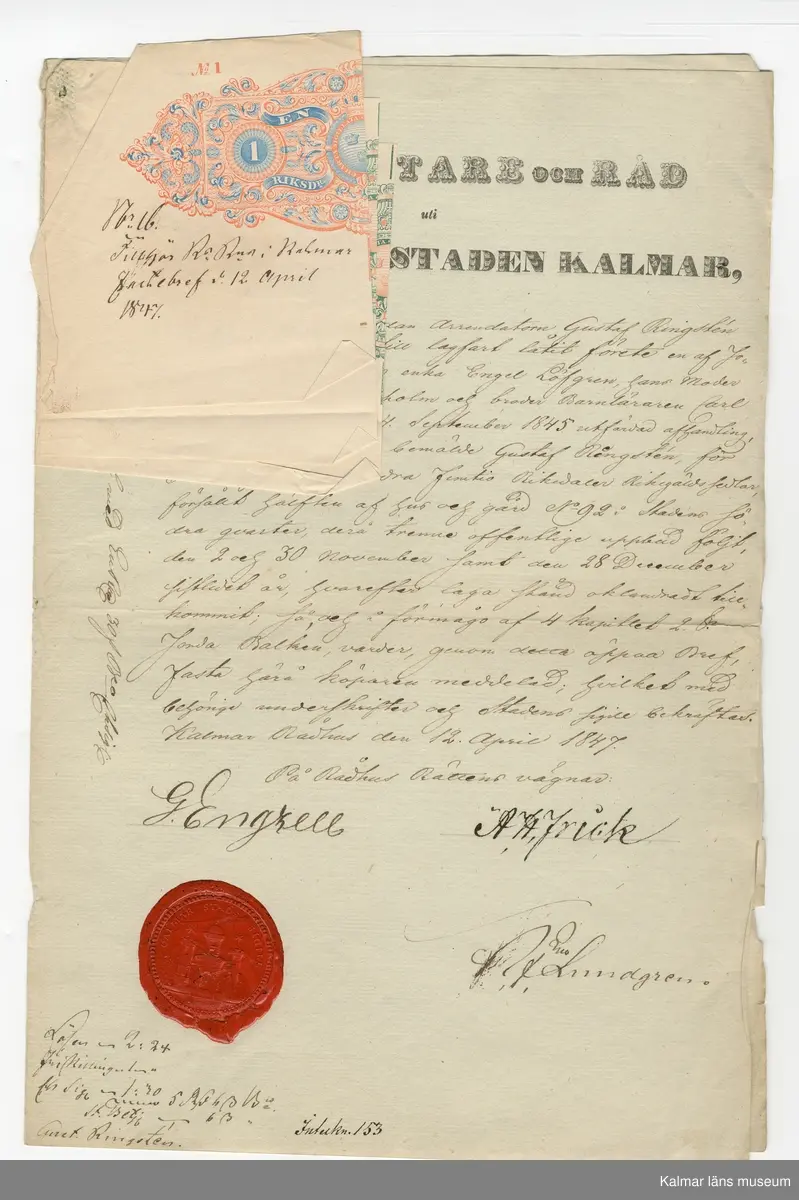 № 1
EN
1
RIKSD
No 16.
Tillhör Rs Rn i Kalmar
fastebref d. 12 April
1847.
TARE OCH RÅD
uti
STADEN KALMAR,
dan Arrendatorn Gustaf Ringstén
till lagfart låtit förete en af
enka Engel Löfgren, hans Moder
holm och broder Barnläraren Carl
4. September 1845 utfärdad afhandling,
bemälde Gustaf Ringstén, för
dra femtio Riksdaler Riksgäldssedlar,
försålt hälften af hus och gård No 92 i Stadens Sö
dra qvarter, derå trenne offentlige uppbud följt,
den 2 och 30 November samt den 28 December
sistlidet år, hvarefter laga stånd oklandradt till-
kommit; så och i förmågo af 4 kapitlet 2 §.
Jorda Balken, varder, genom detta öppna Bref,
fasta härå köparen meddelad; hvilket med
behörige underskrifter och Stadens sigill bekräftas.
Kalmar Rådhus den 12. April 1847.
På Rådhus Rättens vägnar:
G. Engzell
A. H. Frick
Lundgren.
Lösen 2: 24
1: 30
Gust. Ringstén.
Inteckn. 153
Kalmar läns museum